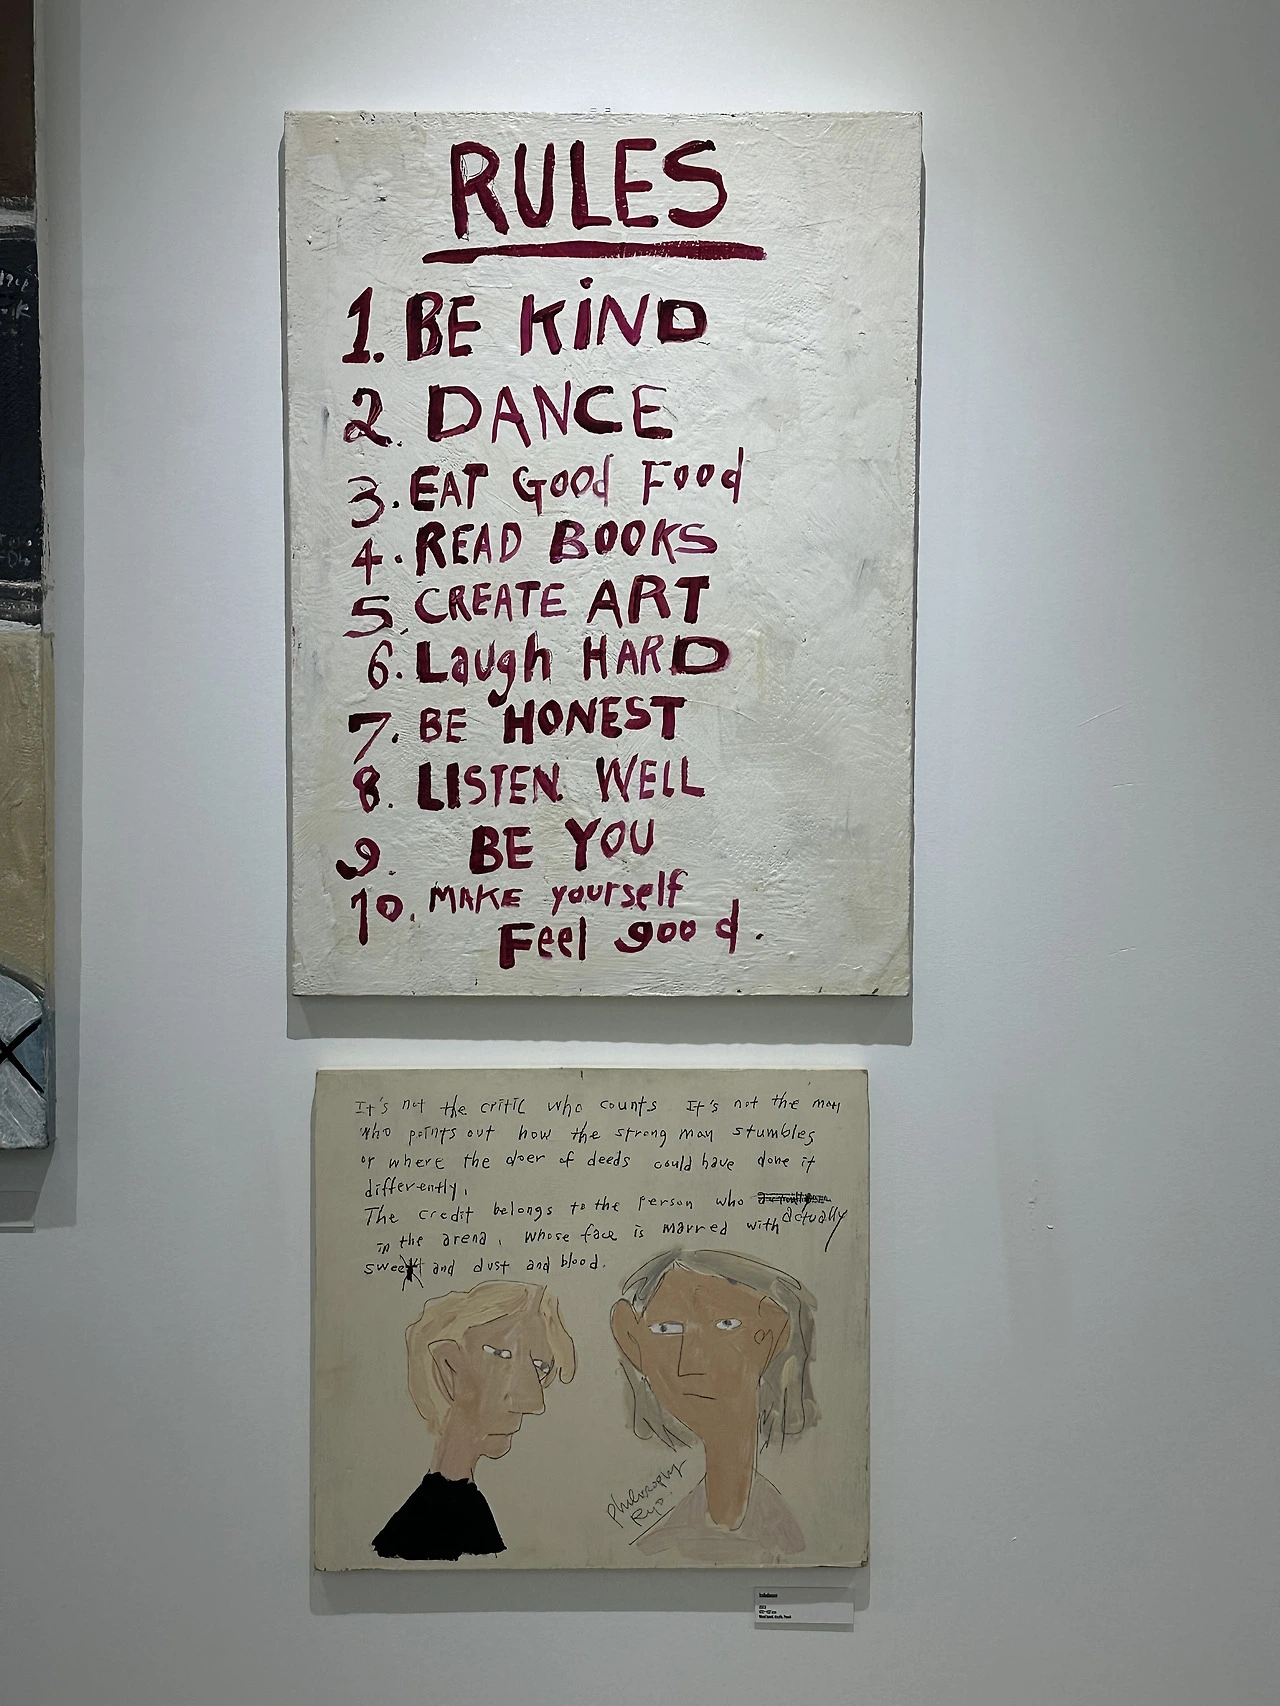 RULES
1. BE KiND
2. DANCE
3. EAT Good Food
4. READ BOOKS
5. CREATE ART
6. Laugh HARD
7. BE HONEST
8. LISTEN. WELL
9. BE YOU
10. MAKE yourself
Feel good.
It's not the critic who counts It's not the man
who points out how the strong man stumbles
or where the doer of deeds could have done it
differently.
The credit belongs to the person who
actually
in the arena. whose face is marred with
sweet and dust and blood.
philosophy
Ryo.